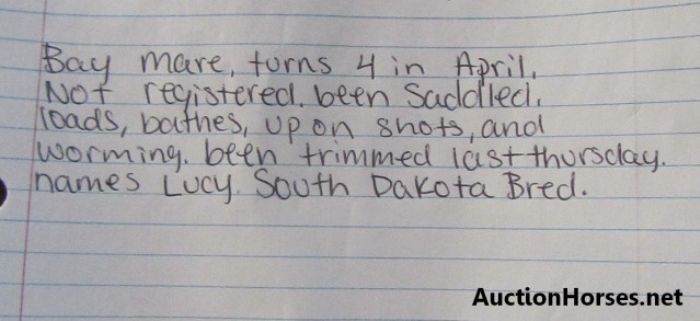 Bay mare, turns 4 in April.
Not registered. been Saddled.
loads, bathes, up on shots, and
worming. been trimmed last thursday.
names Lucy. South Dakota Bred.
AuctionHorses.net